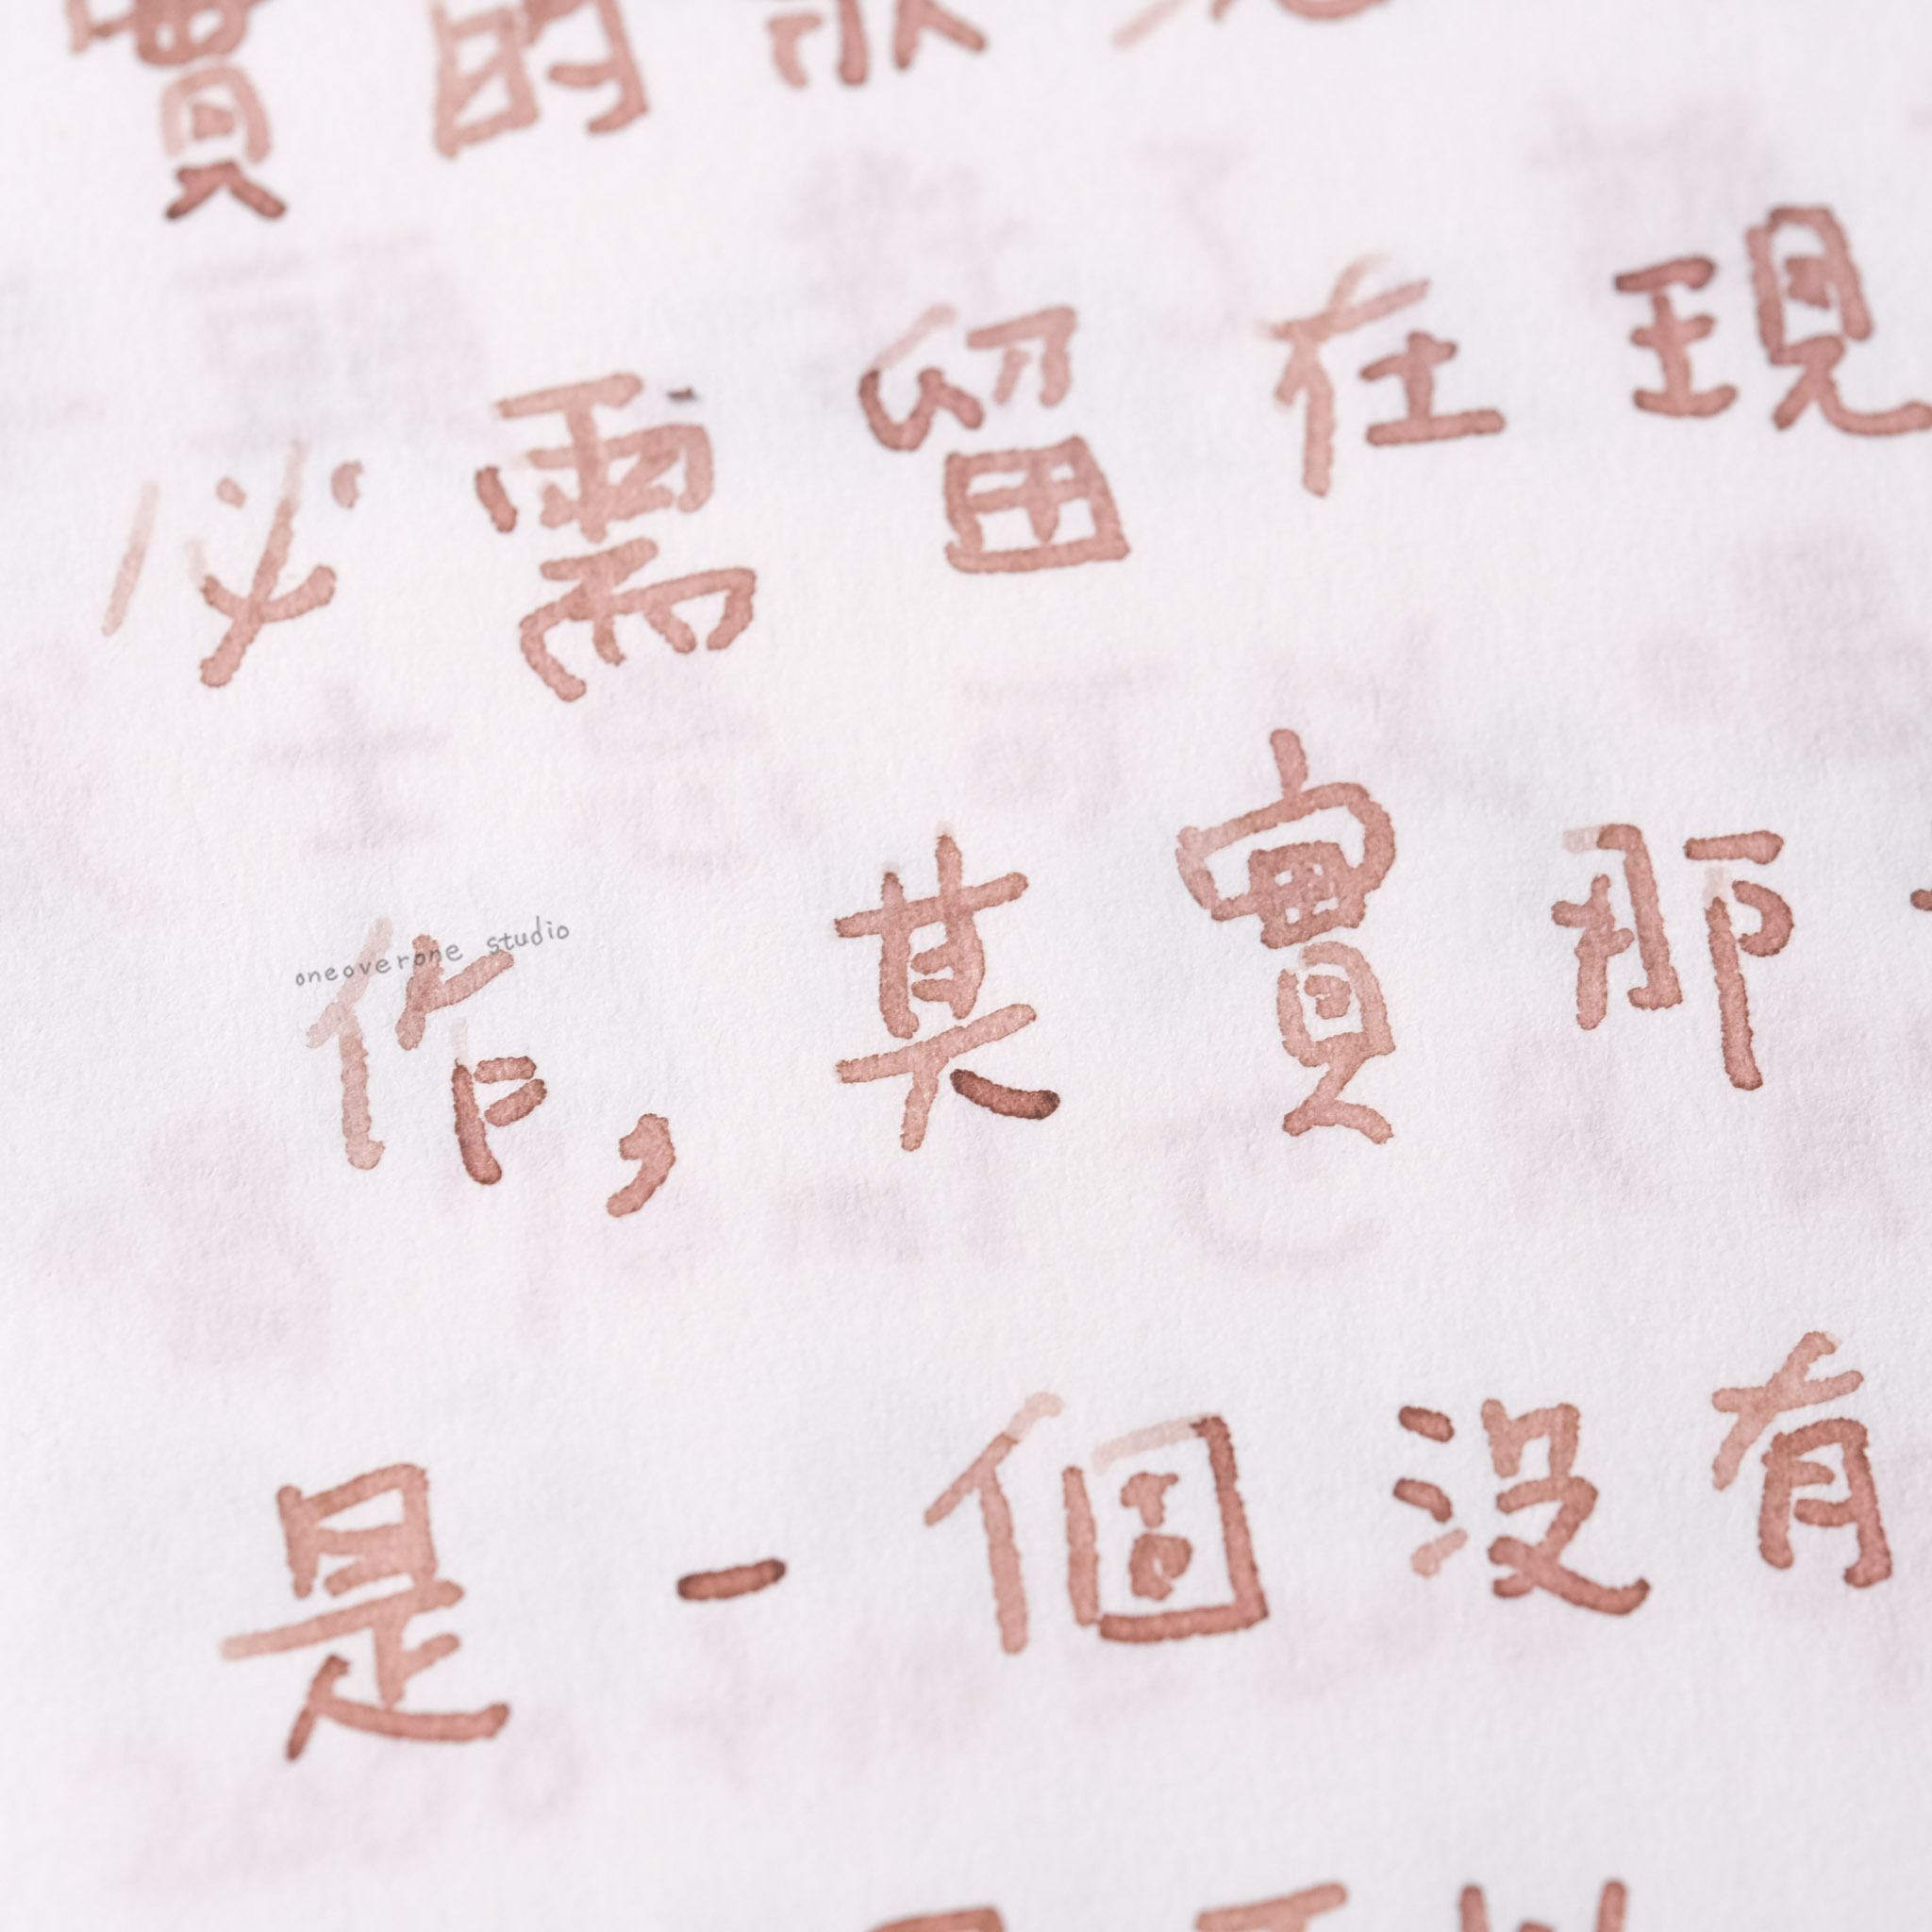 實的
必需留在現
作，其實那
oneoverone studio
是一個沒有